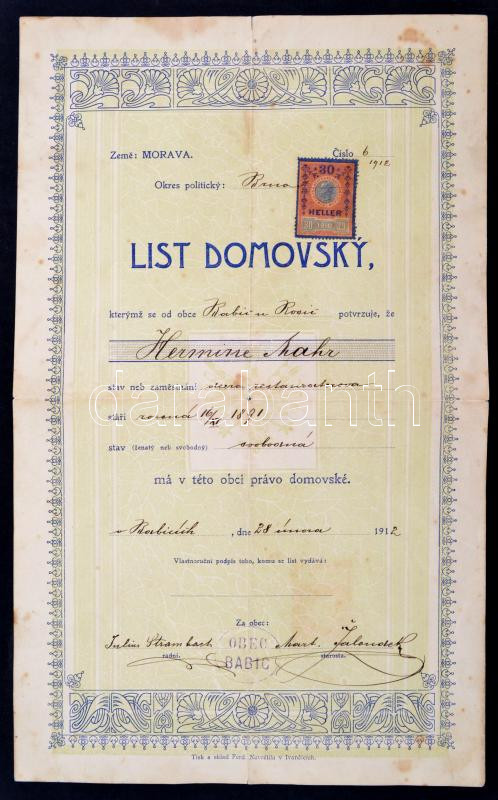 Země: MORAVA. Číslo 6
1912
Okres politický: Brno
30
HELLER
LIST DOMOVSKÝ,
kterýmž se od obce Babic u Rosic potvrzuje, že
Hermine Mahr
stav neb zaměstnání dcera restauratérova
stáří rozená 16/ 1891
stav (ženatý neb svobodný) svobodná
má v této obci právo domovské.
v Babicích, dne 28 února 1912
Vlastnoruční podpis toho, komu se list vydává:
Za obec:
Julius Strambach OBEC Mart. Jalondek
radní. BABIC starosta.
Tisk a sklad Ferd. Navrátila v Ivančicích.
darabanth